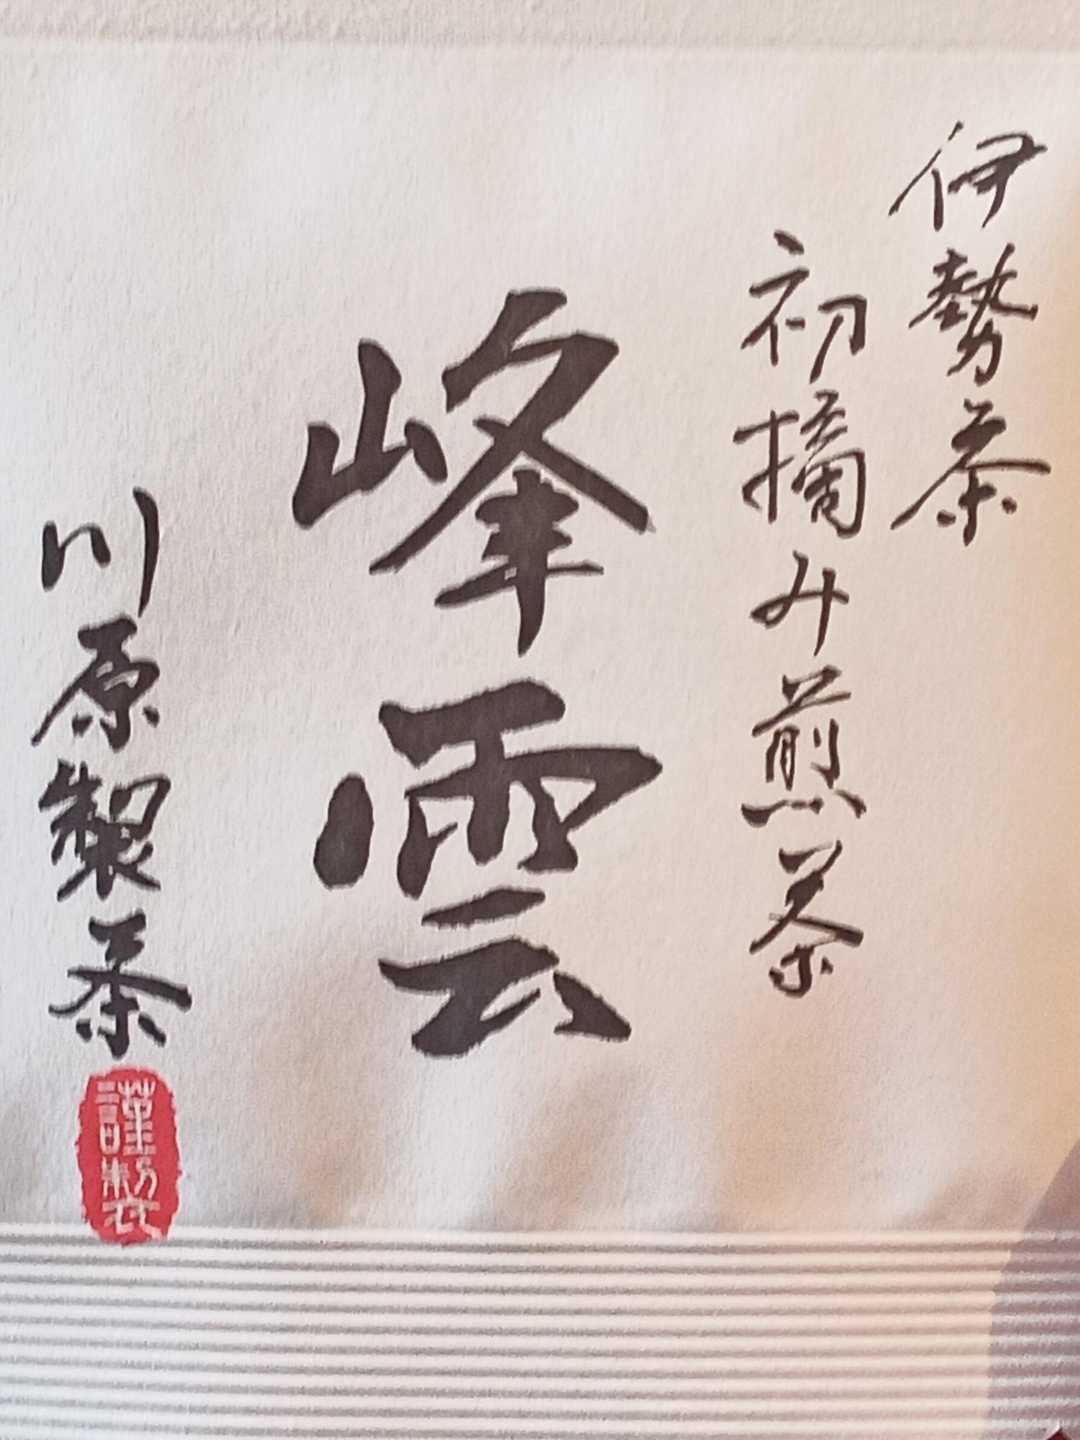 伊勢茶
初摘み煎茶
峰雲
川原製茶
謹製